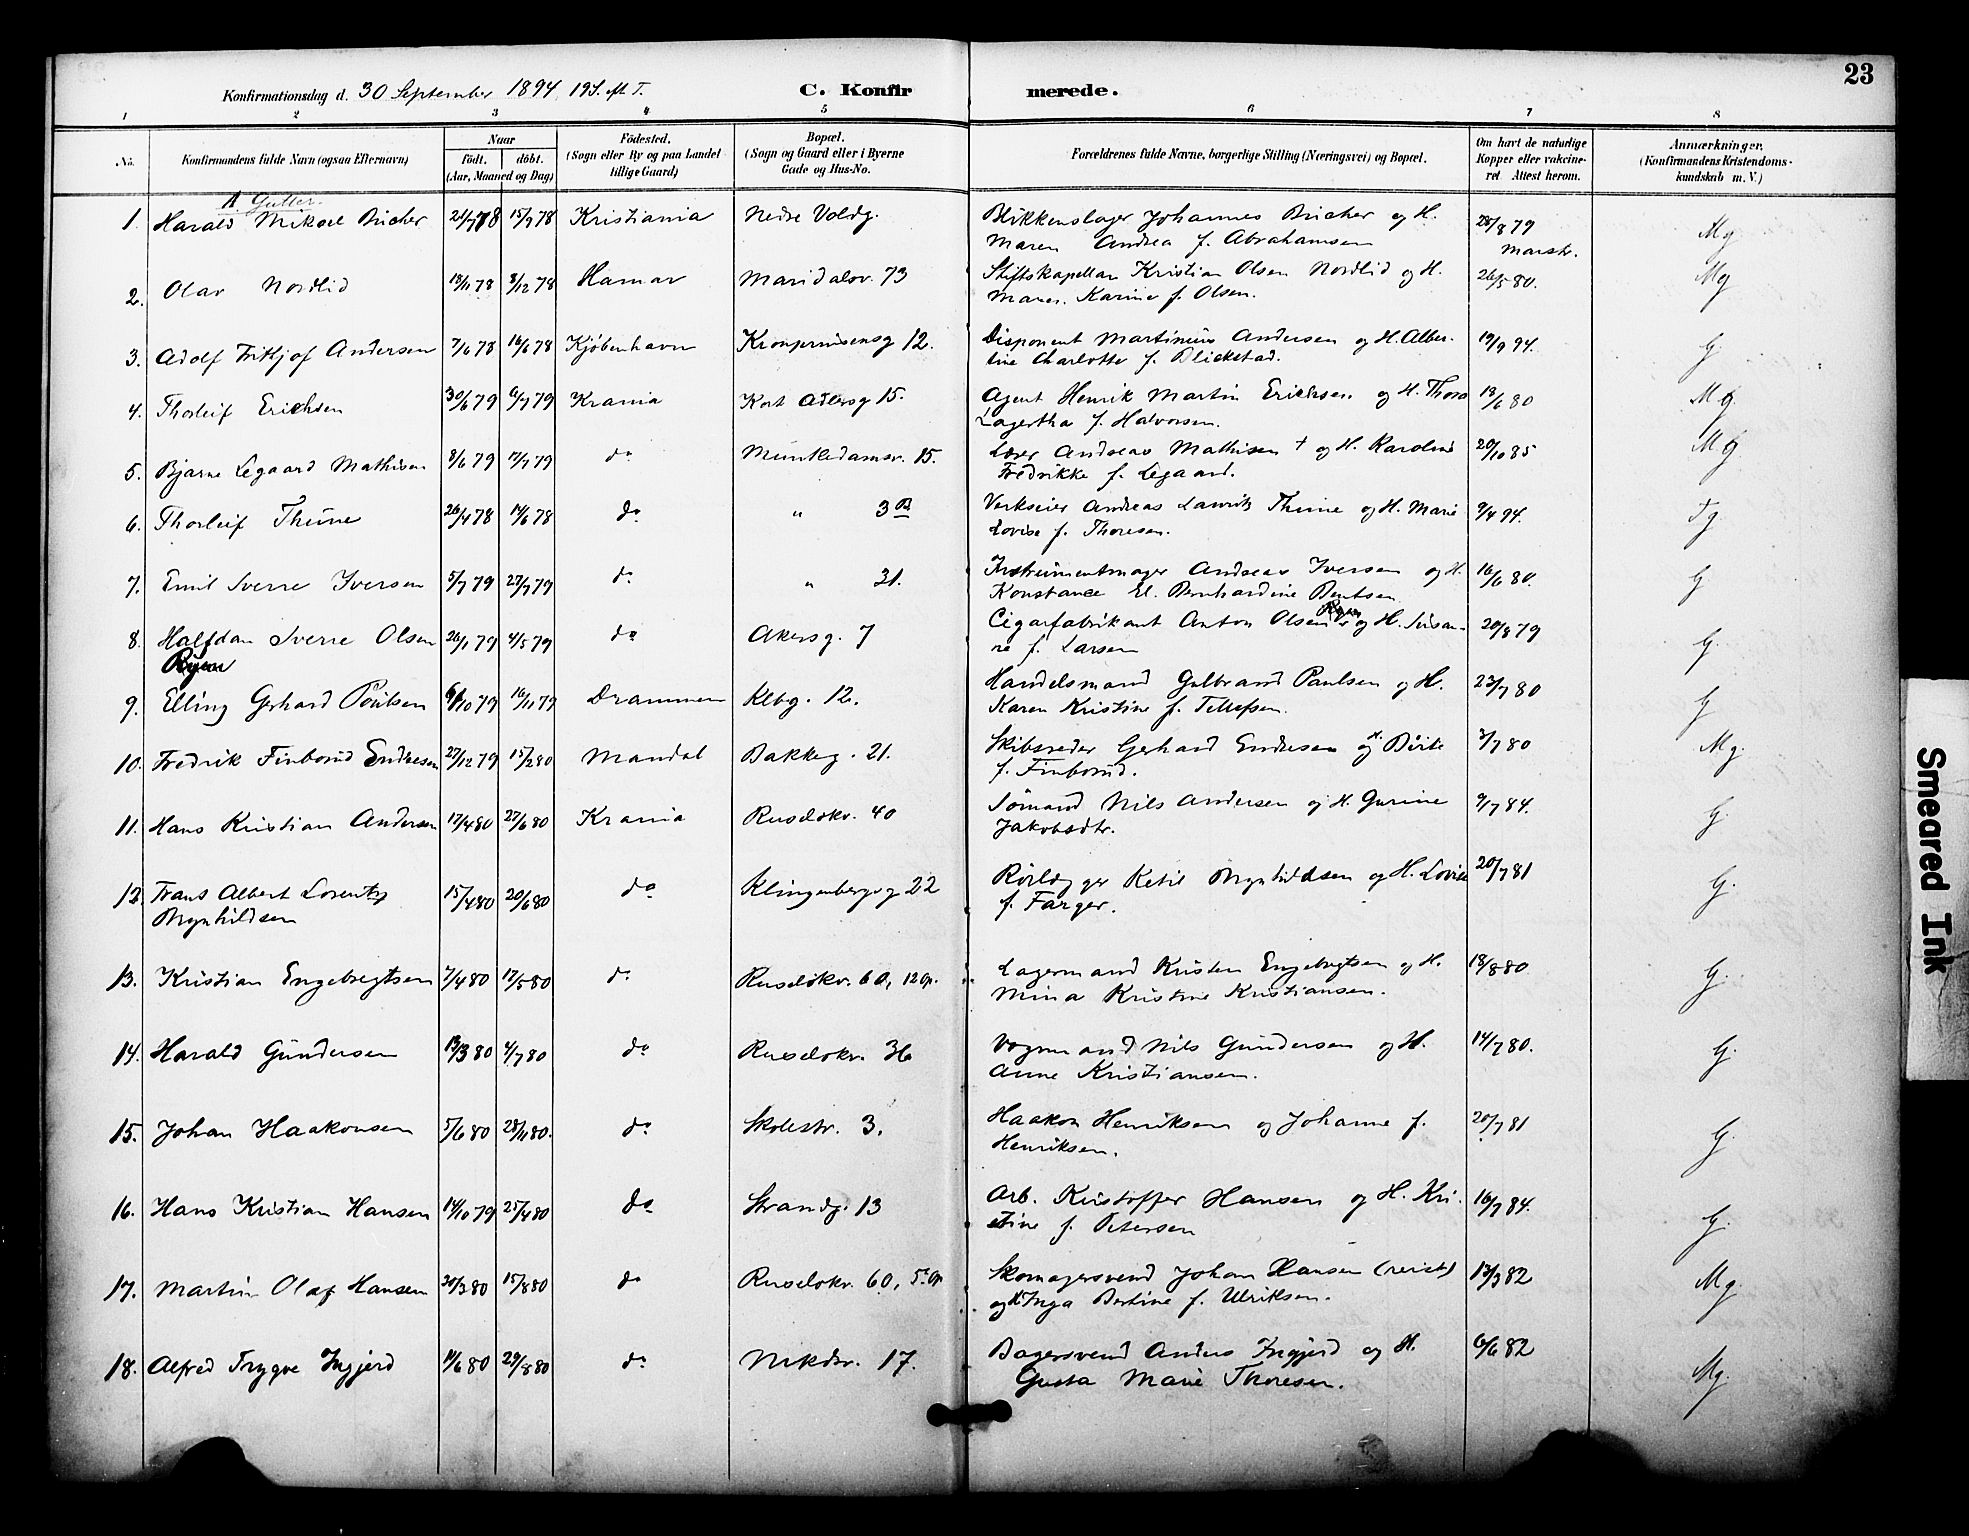 23
Konfirmationsdag d. 30 September 1894, 19 S. eft T.
C. Konfirmerede.
1 2 3 4 5 6 7 8
No. Konfirmandens fulde Navn (ogsaa Efternavn) Naar födt. döbt. (Aar, Maaned og Dag) Födested. (Sogn eller By og paa Landet tillige Gaard) Bopæl. (Sogn og Gaard eller i Byerne Gade og Hus-No. Forældrenes fulde Navne, borgerlige Stilling (Næringsvei) og Bopæl. Om havt de naturlige Kopper eller vakcineret Attest herom. Anmærkninger. (Konfirmandens Kristendomskundskab m. V.)
A Gutter.
1. Harald Mikael Bucher 15/9 78 Kristiania Nedre Voldg. Blikkenslager Johannes Bucher og H. 28/8 79 Mg
Maren Andrea f. Abrahamsen
2. Olav Nordlid 18/11 78 8/12 78 Hamar Maridalsv. 73 Stiftskapellan Kristian Olsen Nordlid og H. 26/5 80. Mg
Karine f. Olsen.
3. Adolf Fritjof Andersen 7/6 78 16/6 78 Kjöbenhavn Kronprinsensg 12. Disponent Martinius Andersen og H. Alber- 19/9 94. G
tine Charlotte f. Blickstad.
4. Thorleif Erichsen 30/6 79 6/7 79 Krania Kort Adlersg 15. Agent Henrik Martin Erichsen og H. Thora 13/6 80 Mg
Lagertha f. Halvorsen.
5. Bjarne Legaard Mathisen 8/6 79 do Munkedamsv. 15. Lærer Andreas Mathisen † og H. Karoline 20/10 85 Mg
Fredrikke f. Legaard.
6. Thorleif Thune 26/4 78 14/6 78 do " 3 B Verkseier Andreas Lauritz Thune og H. Marie 9/4 94. Tg
Lovise f. Thoresen.
7. Emil Sverre Iversen 5/7 79 27/7 79 do " 31. Instrumentmager Andreas Iversen og H. 16/6 80. G
Konstance El. Bernhardine Bentsen
8. Halfdan Sverre Olsen 26/1 79 4/5 79 do Akersg. 7 Cigarfabrikant Anton Olsen Ryen og H. Susan- 20/8 79 G.
Ryen ne f. Larsen
9. Elling Gerhard Poulsen 16/11 79 Drammen Klbg. 12. Handelsmand Gulbrand Paulsen og H. 23/7 80 G
Karen Kristine f. Tellefsen.
10. Fredrik Finborud Endresen 27/12 79 15/2 80 Mandal Bakkeg. 21. Skibsreder Gerhard Endresen og H. Birte 3/7 80 Mg.
f. Finborud.
11. Hans Kristian Andersen 17/4 80 27/6 80 Krania Ruselökv. 40 Sömand Nils Andersen og H. Gurine 9/7 84. G.
Jakobsdtr.
12. Frans Albert Lorentz 15/4 80 20/6 80 do Klingenbergsg 22 Rörlægger Ketil Brynhildsen og H. Lovise 20/7 81 G.
Brynhildsen f. Farger.
13. Kristian Engebregtsen 7/4 80 17/5 80 do Ruselökv. 60, 12 op. Lagermand Kristen Engebregtsen og H. 18/8 80 G.
Mina Kristine Kristiansen.
14. Harald Gundersen 13/3 80 4/7 80 do Ruselökv. 36 Vognmand Nils Gundersen og H. 14/7 80. G.
Anne Kristiansen.
15. Johan Haakonsen 5/6 80 28/11 80. do Skolestr. 3. Haakon Henriksen og Johanne f. 20/7 81 G.
Henriksen.
16. Hans Kristian Hansen 14/10 79 25/4 80 do Strandg. 13 Arb. Kristoffer Hansen og H. Kri- 16/7 84. G.
stine f. Petersen
17. Martin Olaf Hansen 20/3 80 15/8 80 do Ruselökv. 60, 5 op Skomagersvend Johan Hansen (reist) 13/3 82 Mg.
og H. Inga Bertine f. Ulriksen.
18. Alfred Trygve Ingjerd 14/6 80 29/8 80 do 17. Bagersvend Anders Ingjerd og H. 6/6 82 Mg.
Gusta Marie Thoresen.
Smeared Ink